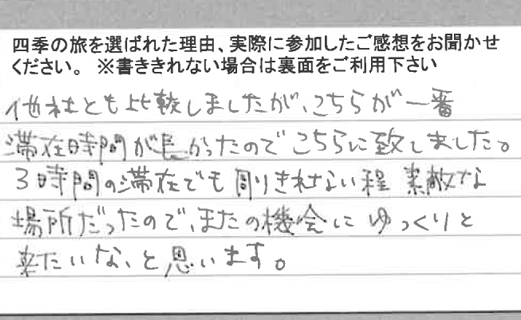 四季の旅を選ばれた理由、実際に参加したご感想をお聞かせ
ください。 ※書ききれない場合は裏面をご利用下さい
他社とも比較しましたが、こちらが一番
滞在時間が長かったのでこちらに致しました。
3時間の滞在でも周りきれない程 素敵な
場所だったので、またの機会に ゆっくりと
来たいな、と思います。